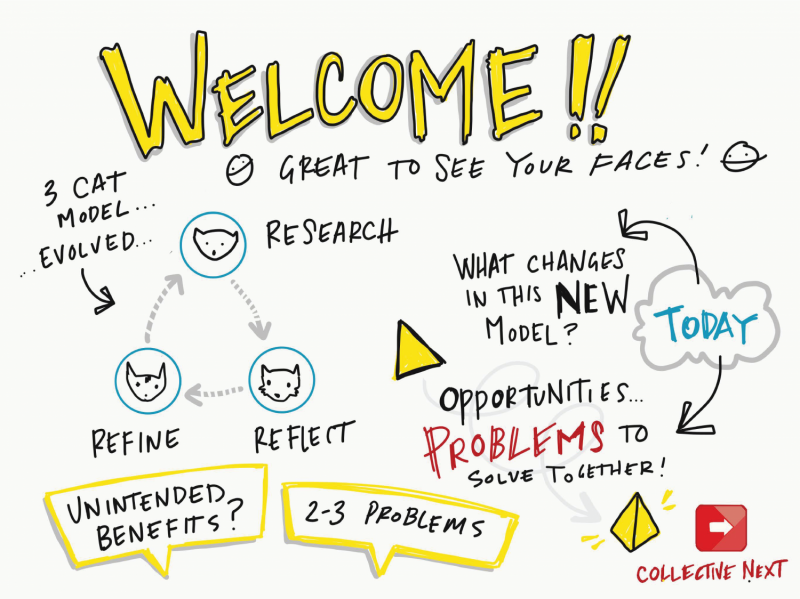 WELCOME!!
GREAT TO SEE YOUR FACES!
3 CAT
MODEL...
...EVOLVED...
RESEARCH
REFINE
REFLECT
WHAT CHANGES
IN THIS NEW
MODEL?
TODAY
OPPORTUNITIES...
PROBLEMS TO
SOLVE TOGETHER!
UNINTENDED
BENEFITS?
2-3 PROBLEMS
COLLECTIVE NEXT